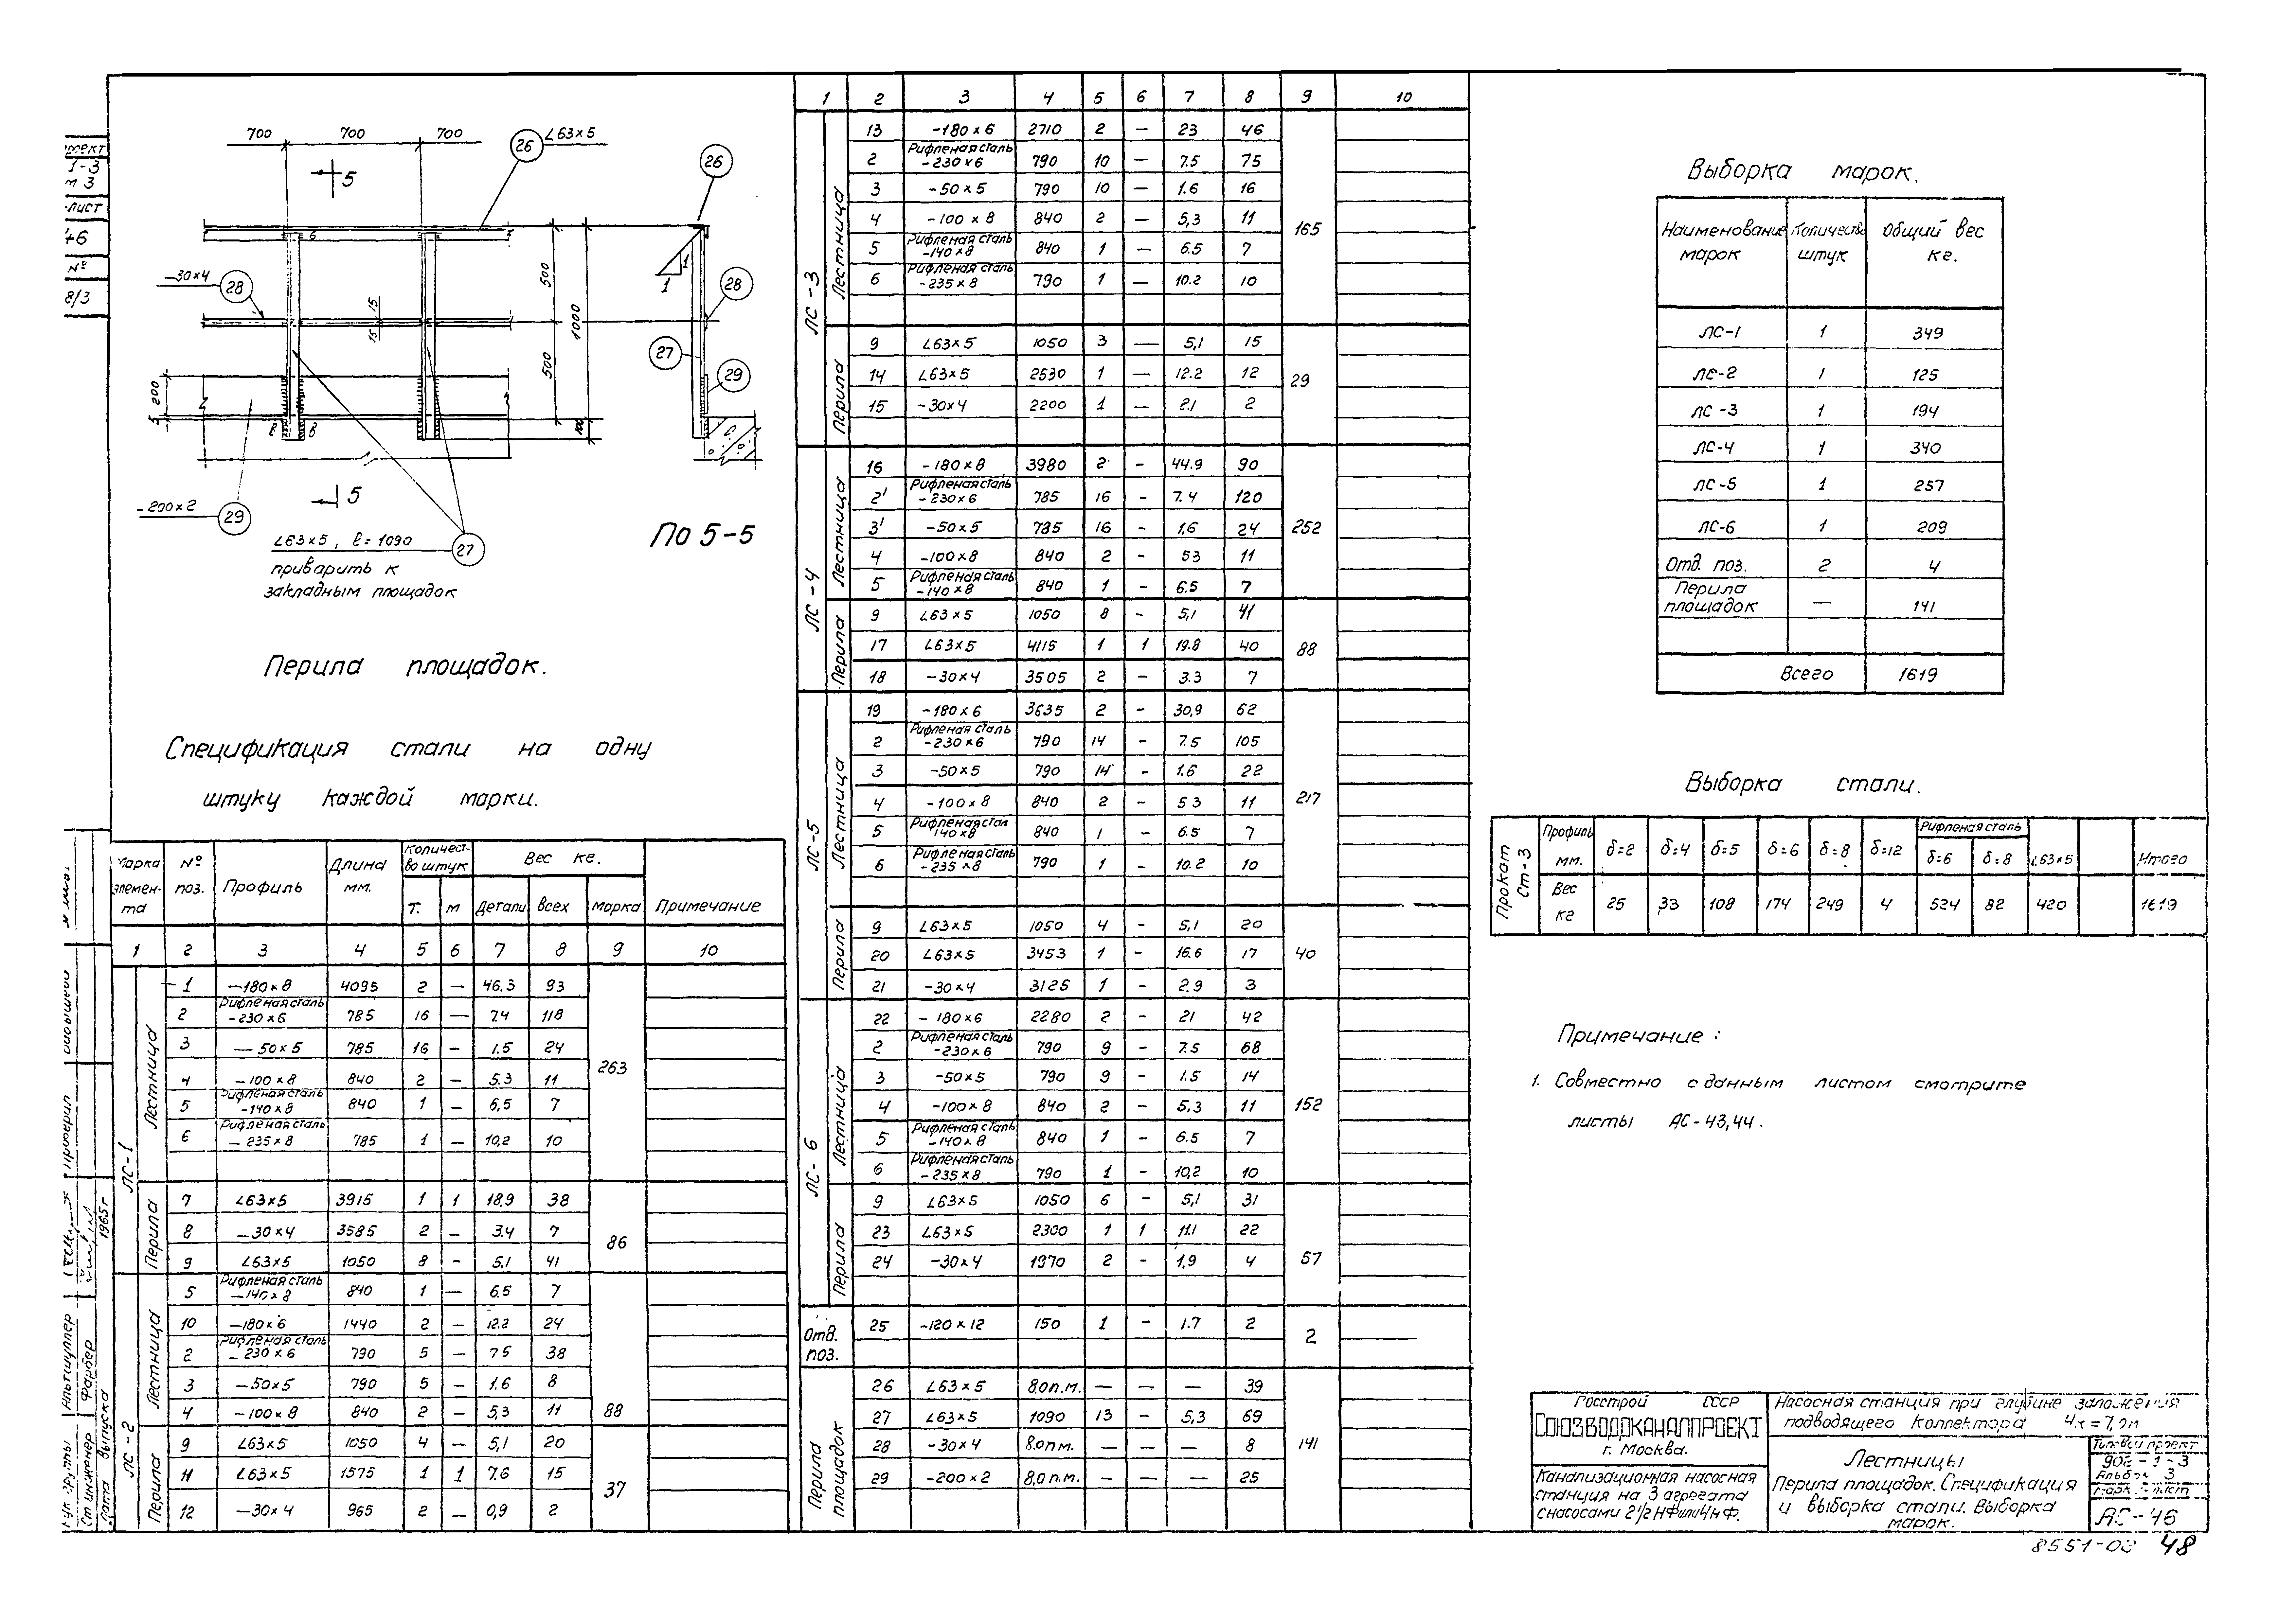 700 700 700
26 L63×5
5
26
6
-30×4
28
15
15
500
500
1000
100
200
5
1
1
28
27
29
8 8
5
-200×2
29
L63×5, ℓ=1090
27
приварить к
закладным площадок
По 5-5
Перила площадок.
Спецификация стали на одну
штуку каждой марки.
Марка элемен-та | № поз. | Профиль | Длина мм. | Количест-во штук | Вес кг. | Примечание
Т. | м | Детали | Всех | Марка
1 | 2 | 3 | 4 | 5 | 6 | 7 | 8 | 9 | 10
ЛС-1
Лестница
1 | -180×8 | 4095 | 2 | - | 46.3 | 93
2 | Рифленая сталь -230×6 | 785 | 16 | - | 7.4 | 118
3 | -50×5 | 785 | 16 | - | 1.5 | 24
263
4 | -100×8 | 840 | 2 | - | 5.3 | 11
5 | Рифленая сталь -140×8 | 840 | 1 | - | 6,5 | 7
6 | Рифленая сталь -235×8 | 785 | 1 | - | 10,2 | 10
Перила
7 | L63×5 | 3915 | 1 | 1 | 18,9 | 38
8 | -30×4 | 3585 | 2 | - | 3.4 | 7
86
9 | L63×5 | 1050 | 8 | - | 5,1 | 41
ЛС-2
Лестница
5 | Рифленая сталь -140×8 | 840 | 1 | - | 6.5 | 7
10 | -180×6 | 1440 | 2 | - | 12.2 | 24
2 | Рифленая сталь -230×6 | 790 | 5 | - | 75 | 38
3 | -50×5 | 790 | 5 | - | 1.6 | 8
4 | -100×8 | 840 | 2 | - | 5,3 | 11 | 88
Перила
9 | L63×5 | 1050 | 4 | - | 5,1 | 20
11 | L63×5 | 1575 | 1 | 1 | 7.6 | 15
37
12 | -30×4 | 965 | 2 | - | 0,9 | 2
1 | 2 | 3 | 4 | 5 | 6 | 7 | 8 | 9 | 10
ЛС-3
Лестница
13 | -180×6 | 2710 | 2 | - | 23 | 46
2 | Рифленая сталь -230×6 | 790 | 10 | - | 7.5 | 75
3 | -50×5 | 790 | 10 | - | 1.6 | 16
4 | -100×8 | 840 | 2 | - | 5,3 | 11
165
5 | Рифленая сталь -140×8 | 840 | 1 | - | 6.5 | 7
6 | Рифленая сталь -235×8 | 790 | 1 | - | 10.2 | 10
Перила
9 | L63×5 | 1050 | 3 | - | 5,1 | 15
14 | L63×5 | 2530 | 1 | - | 12.2 | 12 | 29
15 | -30×4 | 2200 | 1 | - | 2.1 | 2
ЛС-4
Лестница
16 | -180×8 | 3980 | 2 | - | 44.9 | 90
2' | Рифленая сталь -230×6 | 785 | 16 | - | 7.4 | 120
3' | -50×5 | 785 | 16 | - | 1,6 | 24 | 252
4 | -100×8 | 840 | 2 | - | 53 | 11
5 | Рифленая сталь -140×8 | 840 | 1 | - | 6.5 | 7
Перила
9 | L63×5 | 1050 | 8 | - | 5,1 | 41
17 | L63×5 | 4115 | 1 | 1 | 19.8 | 40 | 88
18 | -30×4 | 3505 | 2 | - | 3.3 | 7
ЛС-5
Лестница
19 | -180×6 | 3635 | 2 | - | 30,9 | 62
2 | Рифленая сталь -230×6 | 790 | 14 | - | 7.5 | 105
3 | -50×5 | 790 | 14 | - | 1.6 | 22
4 | -100×8 | 840 | 2 | - | 53 | 11 | 217
5 | Рифленая стал 140×8 | 840 | 1 | - | 6.5 | 7
6 | Рифленая сталь -235×8 | 790 | 1 | - | 10.2 | 10
Перила
9 | L63×5 | 1050 | 4 | - | 5,1 | 20
20 | L63×5 | 3453 | 1 | - | 16.6 | 17 | 40
21 | -30×4 | 3125 | 1 | - | 2.9 | 3
ЛС-6
Лестница
22 | -180×6 | 2280 | 2 | - | 21 | 42
2 | Рифленая сталь -230×6 | 790 | 9 | - | 7.5 | 68
3 | -50×5 | 790 | 9 | - | 1.5 | 14
4 | -100×8 | 840 | 2 | - | 5.3 | 11 | 152
5 | Рифленая сталь -140×8 | 840 | 1 | - | 6.5 | 7
6 | Рифленая сталь -235×8 | 790 | 1 | - | 10,2 | 10
Перила
9 | L63×5 | 1050 | 6 | - | 5,1 | 31
23 | L63×5 | 2300 | 1 | 1 | 11.1 | 22
24 | -30×4 | 1970 | 2 | - | 1,9 | 4 | 57
Отд. поз.
25 | -120×12 | 150 | 1 | - | 1.7 | 2 | 2
Перила площадок
26 | L63×5 | 8.0п.м. | - | - | - | 39
27 | L63×5 | 1090 | 13 | - | 5,3 | 69
28 | -30×4 | 8.0п.м. | - | - | - | 8 | 141
29 | -200×2 | 8,0п.м. | - | - | - | 25
Выборка марок.
Наименование марок | Количество штук | Общий вес кг.
ЛС-1 | 1 | 349
ЛС-2 | 1 | 125
ЛС-3 | 1 | 194
ЛС-4 | 1 | 340
ЛС-5 | 1 | 257
ЛС-6 | 1 | 209
Отд. поз. | 2 | 4
Перила площадок | — | 141
Всего | 1619
Выборка стали.
Прокат Ст-3
Рифленая сталь
Профиль мм. | δ=2 | δ=4 | δ=5 | δ=6 | δ=8 | δ=12 | δ=6 | δ=8 | L63×5 | Итого
Вес кг | 25 | 33 | 108 | 174 | 249 | 4 | 524 | 82 | 420 | 1619
Примечание:
1. Совместно с данным листом смотрите
листы АС-43,44.
Госстрой СССР
СОЮЗВОДОКАНАЛПРОЕКТ
г. Москва.
Канализационная насосная
станция на 3 агрегата
с насосами 2½НФ или 4НФ.
Насосная станция при глубине заложения
подводящего коллектора Нк=7,0м
Лестницы
Перила площадок. Спецификация
и выборка стали. Выборка
марок.
Типовой проект
902-1-3
Альбом 3
Марка-лист
АС-46
8551-03 48
роект
1-3
м 3
-лист
46
№
8/3
Проверил
1965г
Альтшуллер
Фарбер
Рук. группы
Ст инженер
Дата выпуска